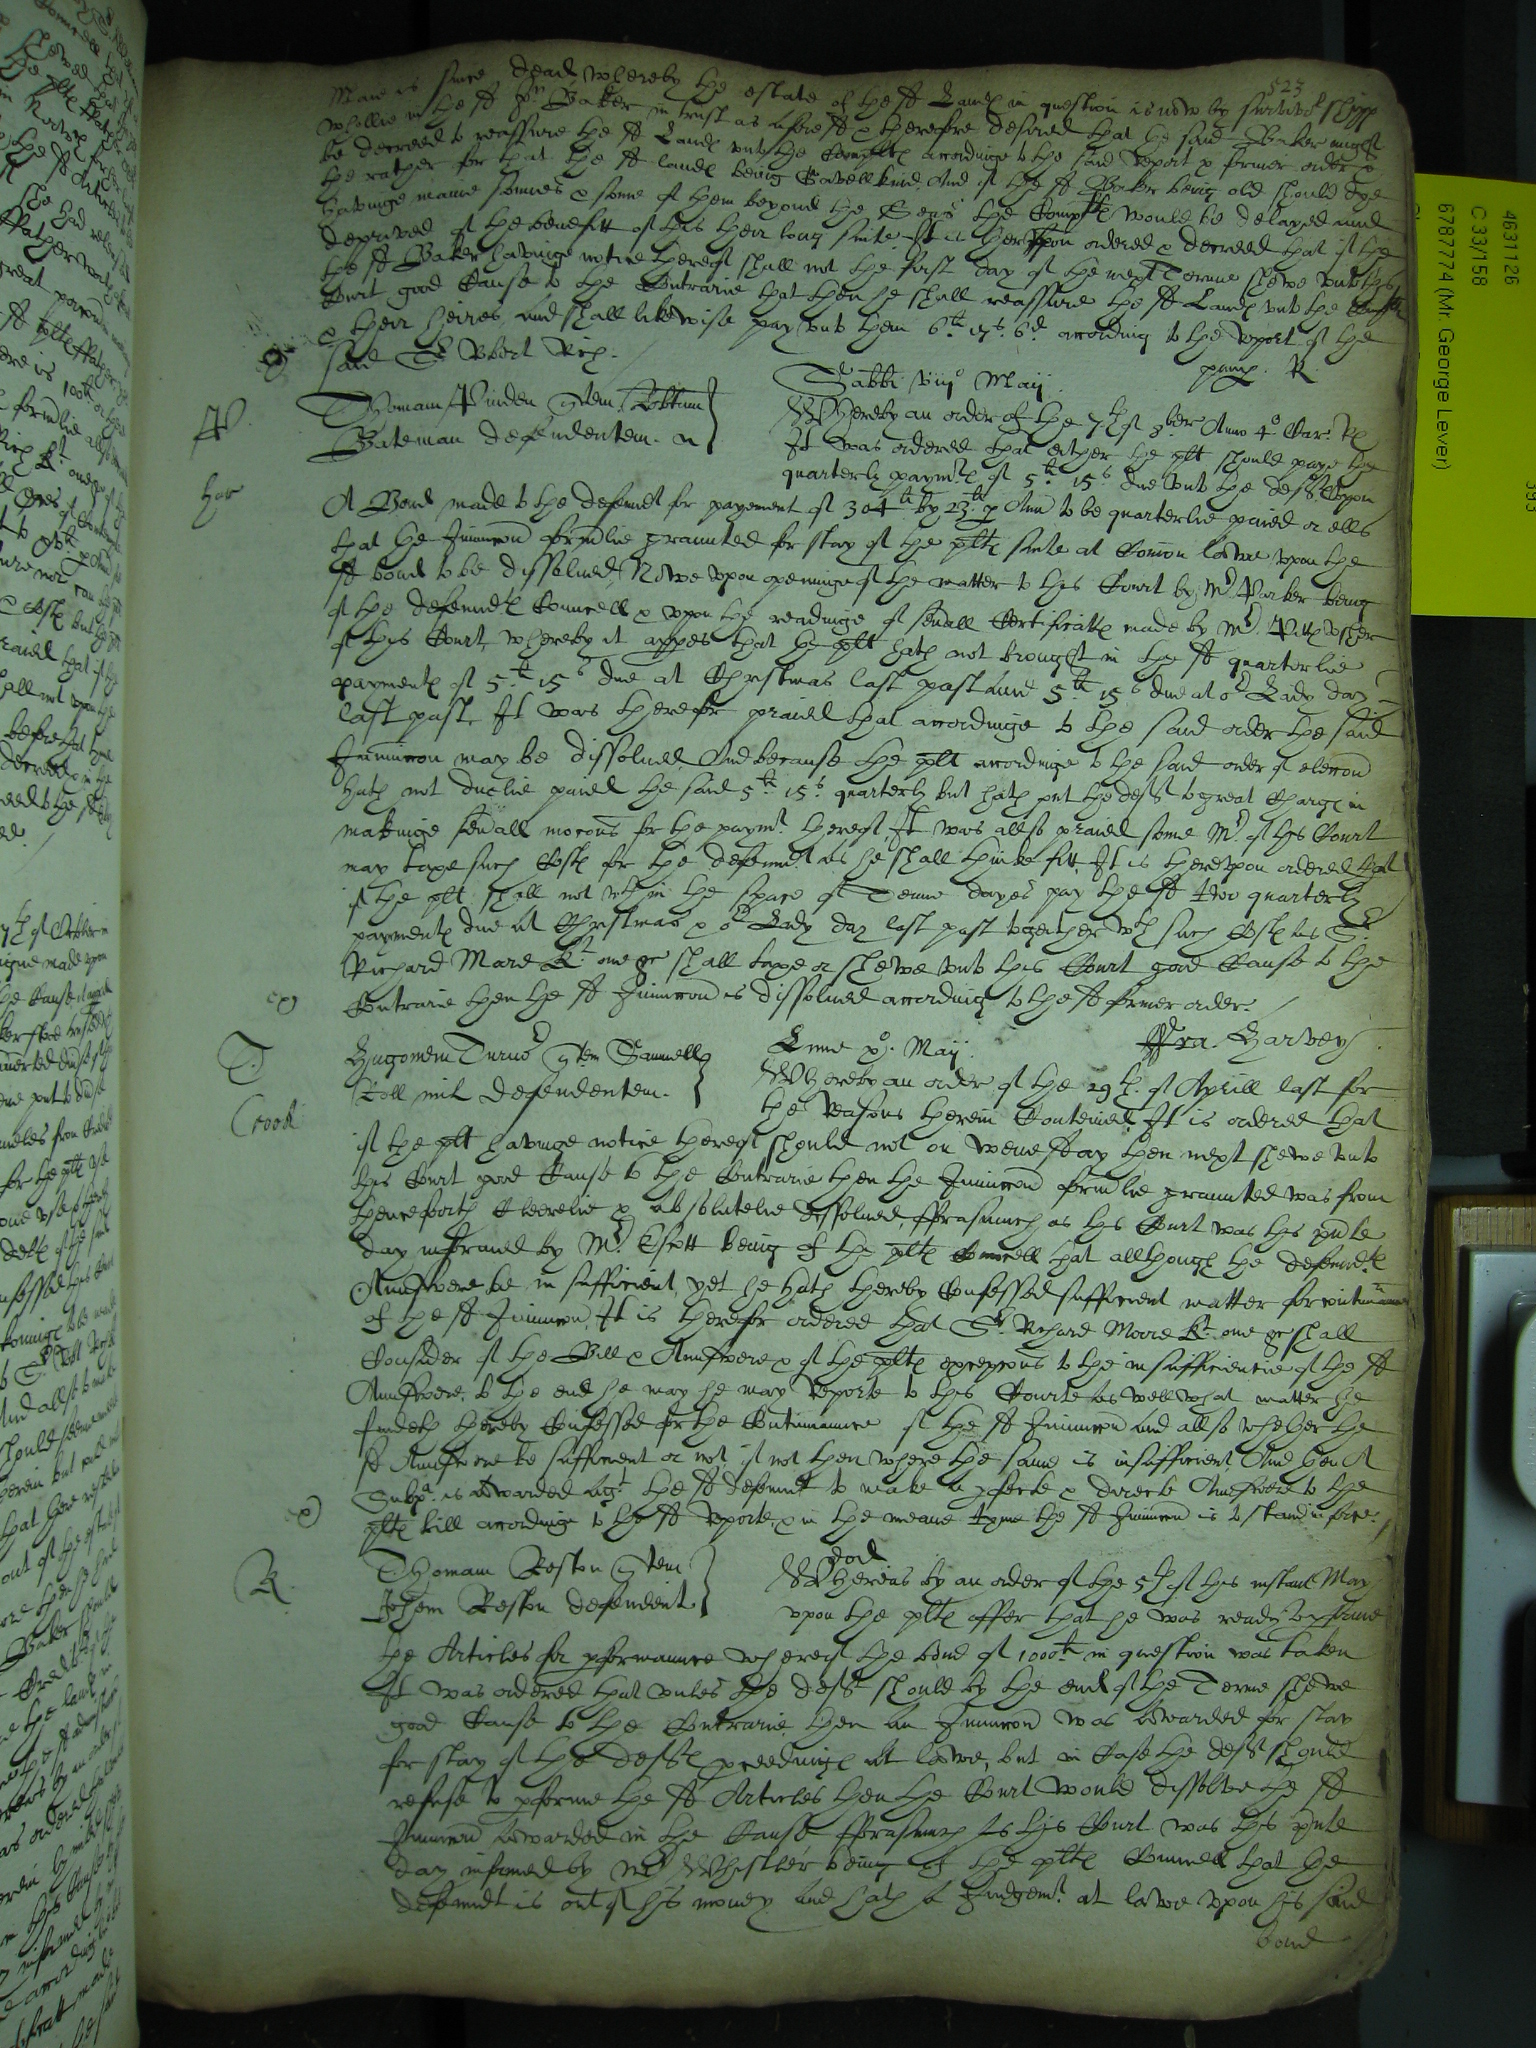 523
Mane is since dead whereby the estate of the sd Landes in question is now by survivorshipp
whollie in the sd Jn Baker in trust as aforesd & therefore desired that the said Baker might
be decreed to reassure the sd Landes unto the Compltes accordinge to the said report & former order &
the rather for that the sd landes being Gavell kind. And if the sd Baker being old should dye
havinge manie sonnes & some of them beyond the Seas the Complts would be delayed and
deprived of the benefitt of this their long suite. It is hereupon ordered & decreed that if the
the sd Baker havinge notice thereof shall not the first day of the next Terme shewe unto this
Court good Cause to the Contrarie that then he shall reassure the sd Landes unto the Complts
& their heires and shall likewise pay unto them 6li 17s 6d according to the report of the
said Sr Robert Rich.
pamp. R
W
har
Thomam Winden quem Robtum
Bateman defendentem
Sabbti viijo Maij
Whereby an order of the 7th of 9ber Anno 4o Car. Rs
It was ordered that either the plt should paye the
quarterly paymts of 5li 15s due unto the deft Upon
A Bond made to the defendt for payement of 304li by 23li p Ann to be quarterlie paied or ells
that the Iniuncon formlie graunted for stay of the pltes suite at Comon lawe upon the
sd bond to be dissolued, Nowe upon openinge of the matter to this Court by Mr Parker being
of the defendtes Councell & upon the readinge of seuall Certificattes made by Mr Pitts Usher
of this Court, whereby it appes that the plt hath not brought in the sd quarterlie
paymentes of 5li 15s due at Christmas last past and 5li 15s due at or Lady day
last past. It was therefor praied that accordinge to the said order the said
Iniuncon may be dissolued And because the plt accordinge to the said order of eleccon
hath not duelie paied the said 5li 15s quarterly but hath put the deft to great Charge in
makinge seuall mocons for the paymt thereof, It was allso praied some Mr of this Court
may taxe such Costes for the defendt as he shall thinke fitt, It is thereupon ordered that
if the plt shall not wthin the space of Tenne dayes pay the sd two quarterly
paymentes due at Christmas & or Lady day last past together wth such Costes as Sr
Richard More Kt. one &c shall taxe or shewe unto this Court good Cause to the
Contrarie then the sd Iniuncon is dissolued according to the sd former order.
ex
Fra. Harvey
T.
Crook
Hugonem Turnor quem Samuell
Toll mil defendentem.
Lune xo. Maij.
Whereby an order of the 29th. of Aprill last for
the reasons therein Conteined. It is ordered that
if the plt havinge notice thereof should not on wensday then next shewe unto
this Court good Cause to the Contrarie then the Iniuncon formlie graunted was from
thenceforth Cleerelie & absolutelie dissolued, fforasmuch as this Court was this pnte
day informed by Mr Estott being of the pltes Councell that allthough the defendtes
Answere be in sufficient, yet he hath thereby Confessed sufficient matter for continuance
of the sd Iniuncon, It is therefor ordered that Sr Richard Moore Kt. one &c shall
Consider of the Bill & Answere & of the pltes excepcons to the insufficiencie of the sd
Answere, to the end he may he may reporte to this Courte as well what matter he
findeth thereby Confessed for the Contenuance of the sd Iniuncon and allso whether the
sd Answere be sufficient or not if not then where the same is insufficient, And then A
Subpa. is awarded agt the sd defendt to make a pfecte & directe Answere to the
pltes bill accordinge to the sd Reporte, & in the meane tyme the sd Iniuncon is to stand in force.
ex
R
Thomam Keston quem
Johem Keston defendent
eod
Whereas by an order of the 5th of this instant May
upon the pltes offer that he was ready to pforme
the Articles for pformannce whereof the bond of 1000li in question was taken
It was ordered that unles the deft should by the end of the Terme shewe
good Cause to the Contrarie, then an Iniuncon was awarded for stay
for stay of the deftes pceedinges at lawe, but in Case the deft should
refuse to pforme the sd Articles then the Court would dissolve the sd
Iniuncon awarded in the Cause fforasmuch As this Court was this pnte
day informed by Mr Whistler being of the pltes Councell that the
defendt is out of his money and hath a Judgemt at lawe upon his said
bond
4631126
C 33/158
6787774 (Mr. George Lever)